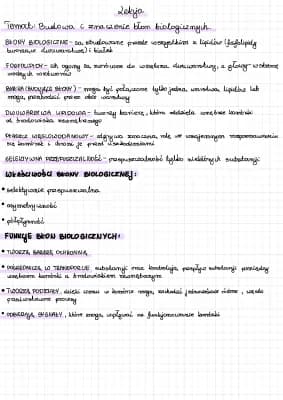 Lekcja
Temat: Budowa i znaczenie błon biologicznych.
BŁONY BIOLOGICZNE - są zbudowane przede wszystkim z lipidów (fosfolipidy
tworzące dwuwarstwę) i białek
FOSFOLIPIDY - ich ogony są zwrócone do wnętrza dwuwarstwy, a głowy w stronę
wodnych roztworów
BIAŁKA (BUDUJĄCE BŁONY) - mogą być połączone tylko jedną warstwą lipidów lub
mogą przechodzić przez obie warstwy
DWUWARSTWA LIPIDOWA - tworzy barierę, która oddziela wnętrze komórki
od środowiska zewnętrznego
PŁASZCZ WĘGLOWODANOWY - odgrywa znaczną rolę we wzajemnym rozpoznawaniu
się komórek i chroni je przed uszkodzeniami
SELEKTYWNA PRZEPUSZCZALNOŚĆ - przepuszczalność tylko niektórych substancji
WŁAŚCIWOŚCI BŁONY BIOLOGICZNEJ:
• selektywnie przepuszczalna
• asymetryczność
• półpłynność
FUNKCJE BŁON BIOLOGICZNYCH:
• TWORZĄ BARIERĘ OCHRONNĄ
• POŚREDNICZĄ W TRANSPORCIE substancji oraz kontrolują przepływ substancji pomiędzy
wnętrzem komórki a środowiskiem zewnętrznym
• TWORZĄ PRZEDZIAŁY, dzięki czemu w komórce mogą zachodzić jednocześnie różne, często
przeciwstawne procesy
• ODBIERAJĄ SYGNAŁY, które mogą wpływać na funkcjonowanie komórki